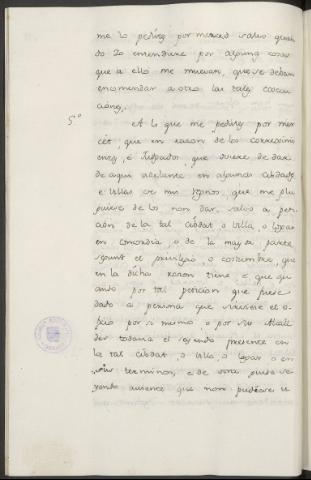 me lo pedis por merced salvo quan
do Io entendiere por algunas cosas
que a ello me muevan, que se deban
encomendar a otro las tales
5º A lo que me pedis por mer
cet, que en razon de los corregimi
entos, e Jusgados que oviere de dar
de aqui adelante en algunas cibdades
e Villas de mis Regnos, que me plu
guiese de los non dar, salvo a peti
cion de la tal cibdat o Villa, o Logar
en concordia, o de la mayor parte,
segunt el previllejo, o costumbre, que
en la dicha razon tiene, e que qu
ando por tal peticion que fuese
dado a persona que sirviese el o
ficio por si mismo, o por sus Alcall
des todavia el seyendo presente en
la tal cibdat, o Villa, o Logar o en
sus terminos, e de otra guisa se
yendo ausente que non pudiese